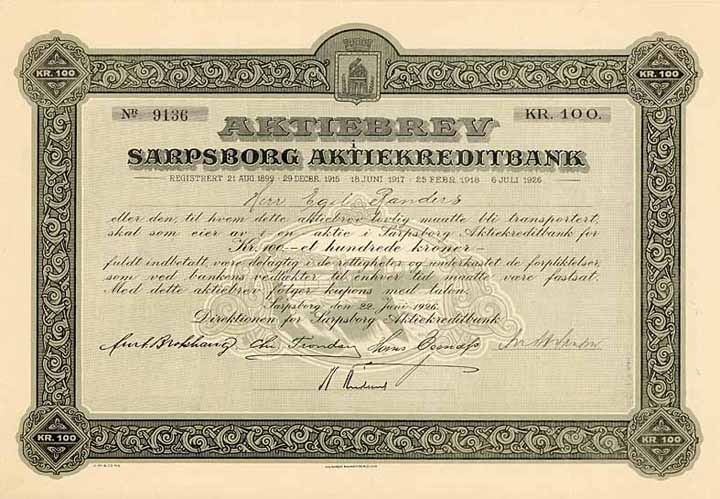 KR. 100 KR. 100
Nʀ 9136 KR. 100.
AKTIEBREV
i
SARPSBORG AKTIEKREDITBANK
REGISTRERT 21 AUG. 1899 - 29 DECBR. 1915 18 JUNI 1917 - 25 FEBR. 1918 6 JULI 1926
Herr Egil Randers
eller den, til hvem dette aktiebrev lovlig maatte bli transportert,
skal som eier av i en aktie i Sarpsborg Aktiekreditbank for
Kr. 100 – et hundrede kroner –
fuldt indbetalt, være delagtig i de rettigheter og underkastet de forpliktelser,
som ved bankens vedtækter til enhver tid maatte være fastsat.
Med dette aktiebrev følger kupons med talon.
Sarpsborg den 22. Juni 1926.
Direktionen for Sarpsborg Aktiekreditbank
KR. 100 KR. 100